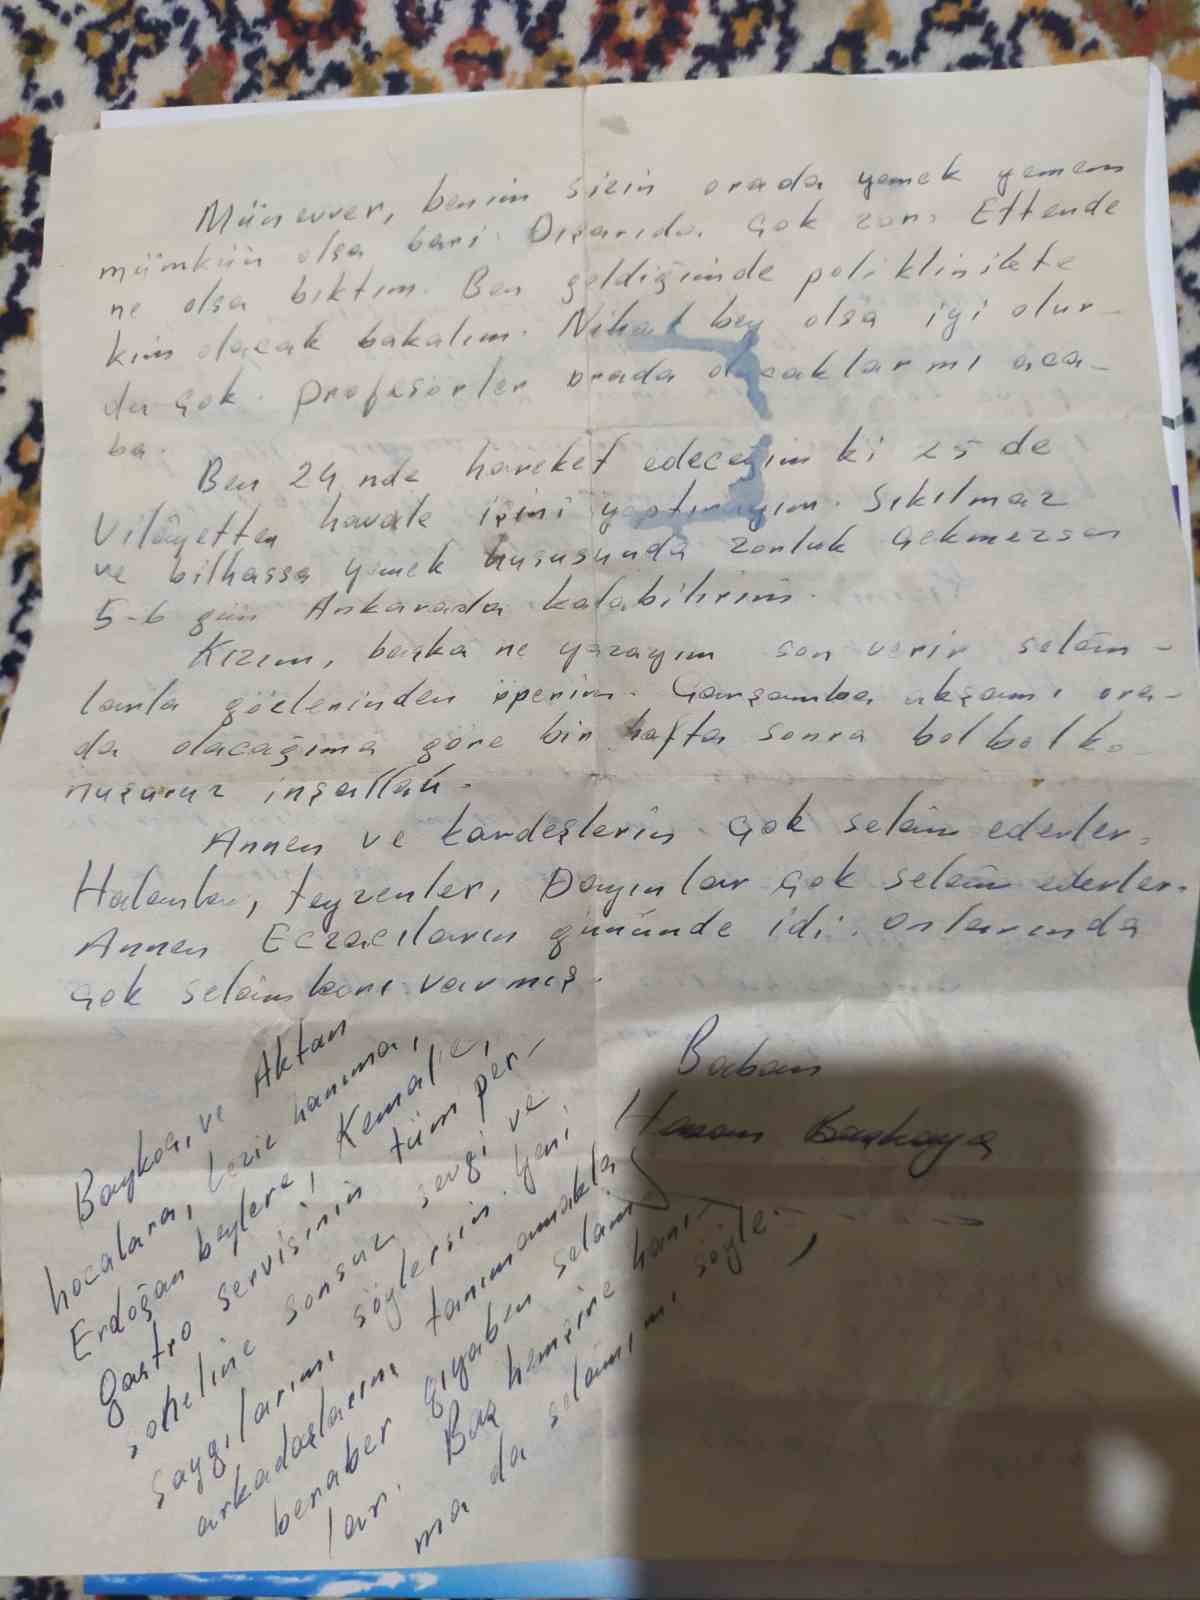 Münevver, benim sizin orada yemek yemem
mümkün olsa bari. Dışarıda çok zor. Ettende
ne olsa bıktım. Ben geldiğimde poliklinikte
kim olacak bakalım. Nihat bey olsa iyi olur-
du çok. Profesörler orada olacaklarmı aca-
ba.
Ben 24 nde hareket edeceğim ki 25 de
Vilâyetten havale işini yaptırayım. Sıkılmaz
ve bilhassa yemek hususunda zorluk çekmezsem
5-6 gün Ankarada kalabilirim.
Kızım, başka ne yazayım son verir selâm-
larla gözlerinden öperim. Çarşamba akşamı ora-
da olacağıma göre bir hafta sonra bol bol ko-
nuşuruz inşallah.
Annen ve kardeşlerin çok selâm ederler.
Halanlar, teyzenler, Dayınlar çok selâm ederler.
Annen Eczacıların gününde idi. onlarında
çok selâmları varmış.
Baban
Hasan Başkaya
Baykal, ve Aktan
hocalara, hanıma,
Erdoğan beylere, Kemale,
gastro servisinin tüm per-
soneline sonsuz sevgi ve
saygılarımı söylersin. Yeni
arkadaşlarını tanımamakla
beraber gıyaben selâm
lar. Baş hemşire hanı-
ma da selâmımı söyle.